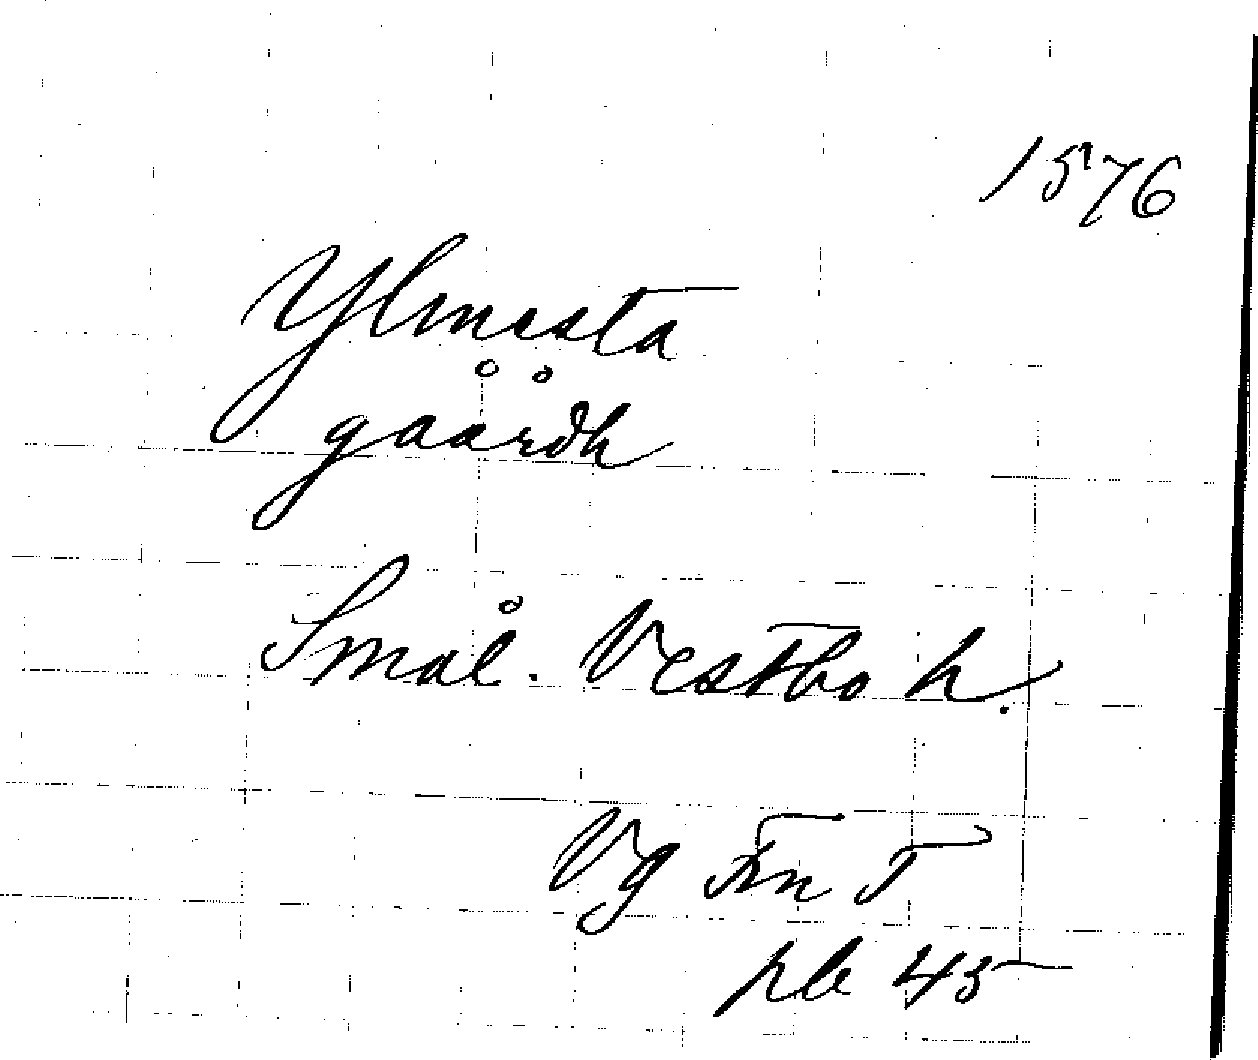 1576
Ylmesta
gåårdh
Smål. Vestbo h.
Vg Fr T
sk 45